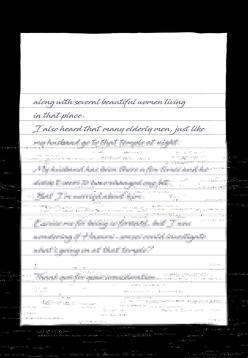 along with several beautiful women living
in that place.
I also heard that many elderly men, just like
my husband go to that temple at night.
My husband has been there a few times and he
doesn't seem to have changed one bit.
But I'm worried about him.
Excuse me for being so forward, but I was
wondering if sensei could investigate
what's going on at that temple??
Thank you for your consideration.